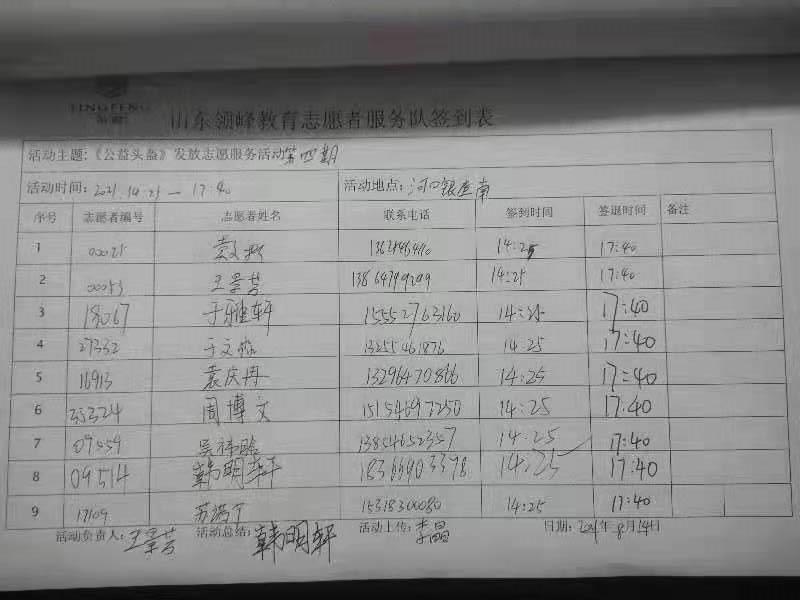 LINGFENG
山东领峰教育志愿者服务队签到表
活动主题:《公益头盔》发放志愿服务活动第四期
活动时间: 2021.14.25—17:40 活动地点: 河口银座南
序号 志愿者编号 志愿者姓名 联系电话 签到时间 签退时间 备注
1 00025 14:25 17:40
2 00053 王景芸 13864799299 14:25 17:40
3 18067 于雅轩 15552763160 14:25 17:40
4 27332 于文 13255461876 14:25 17:40
5 16913 袁庆冉 13296470866 14:25 17:40
6 35324 周博文 15154697250 14:25 17:40
7 09559 吴祎晗 13854652357 14:25 17:40
8 09514 韩明轩 14:25 17:40
9 17109 苏 15318300080 14:25 17:40
活动负责人: 王景芸 活动总结: 韩明轩 活动上传: 李晶 日期: 2021年8月14日